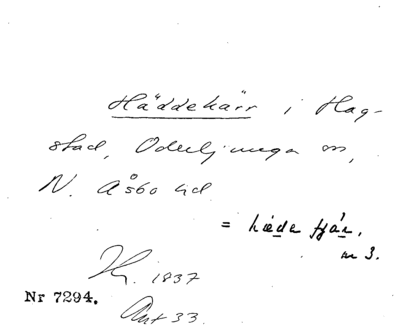 Häddekärr i Hag-
stad, Oderljunga sn,
N. Åsbo hd
= hæde tjár,
m 3.
1837
Nr 7294.
Ant 33.